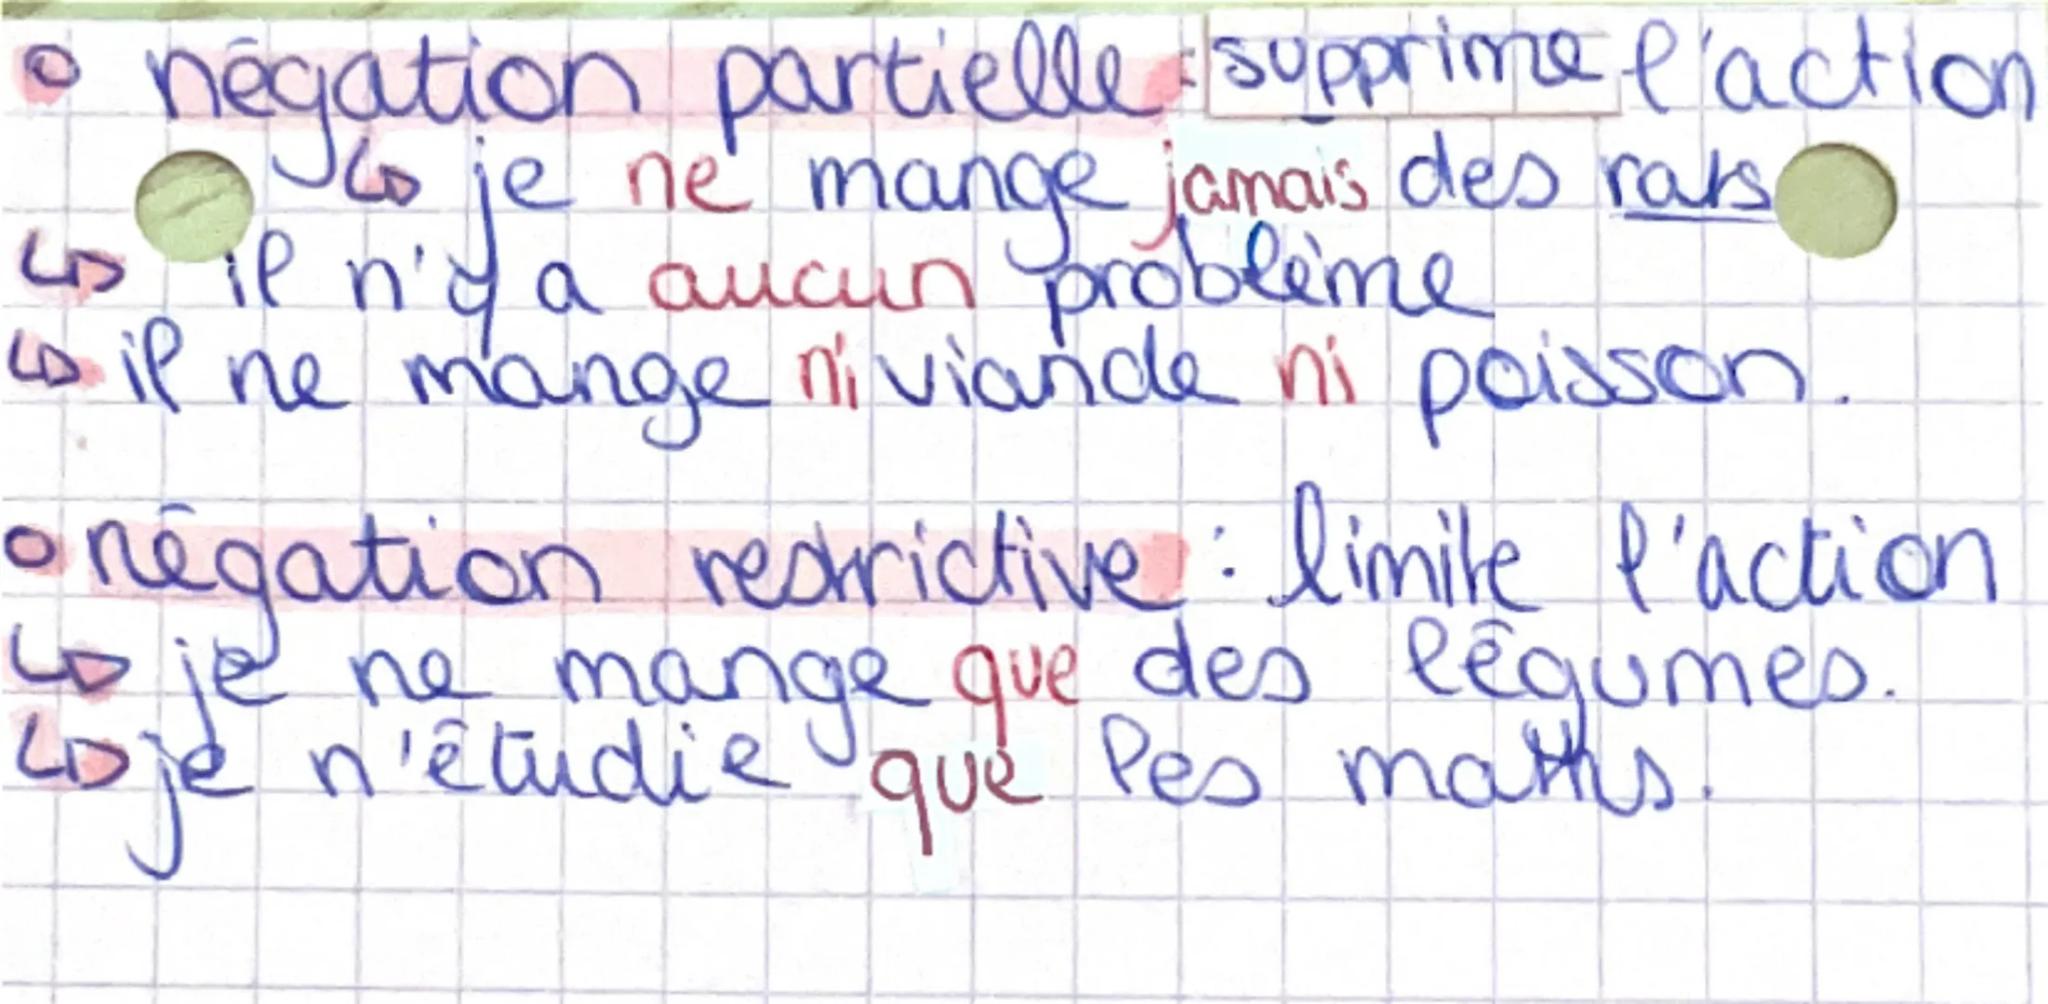 o négation partielle : supprime l'action
↳ je ne mange jamais des rats
↳ il n'y a aucun problème
↳ il ne mange ni viande ni poisson.
o négation restrictive : limite l'action
↳ je ne mange que des légumes.
↳ je n'étudie que les maths.